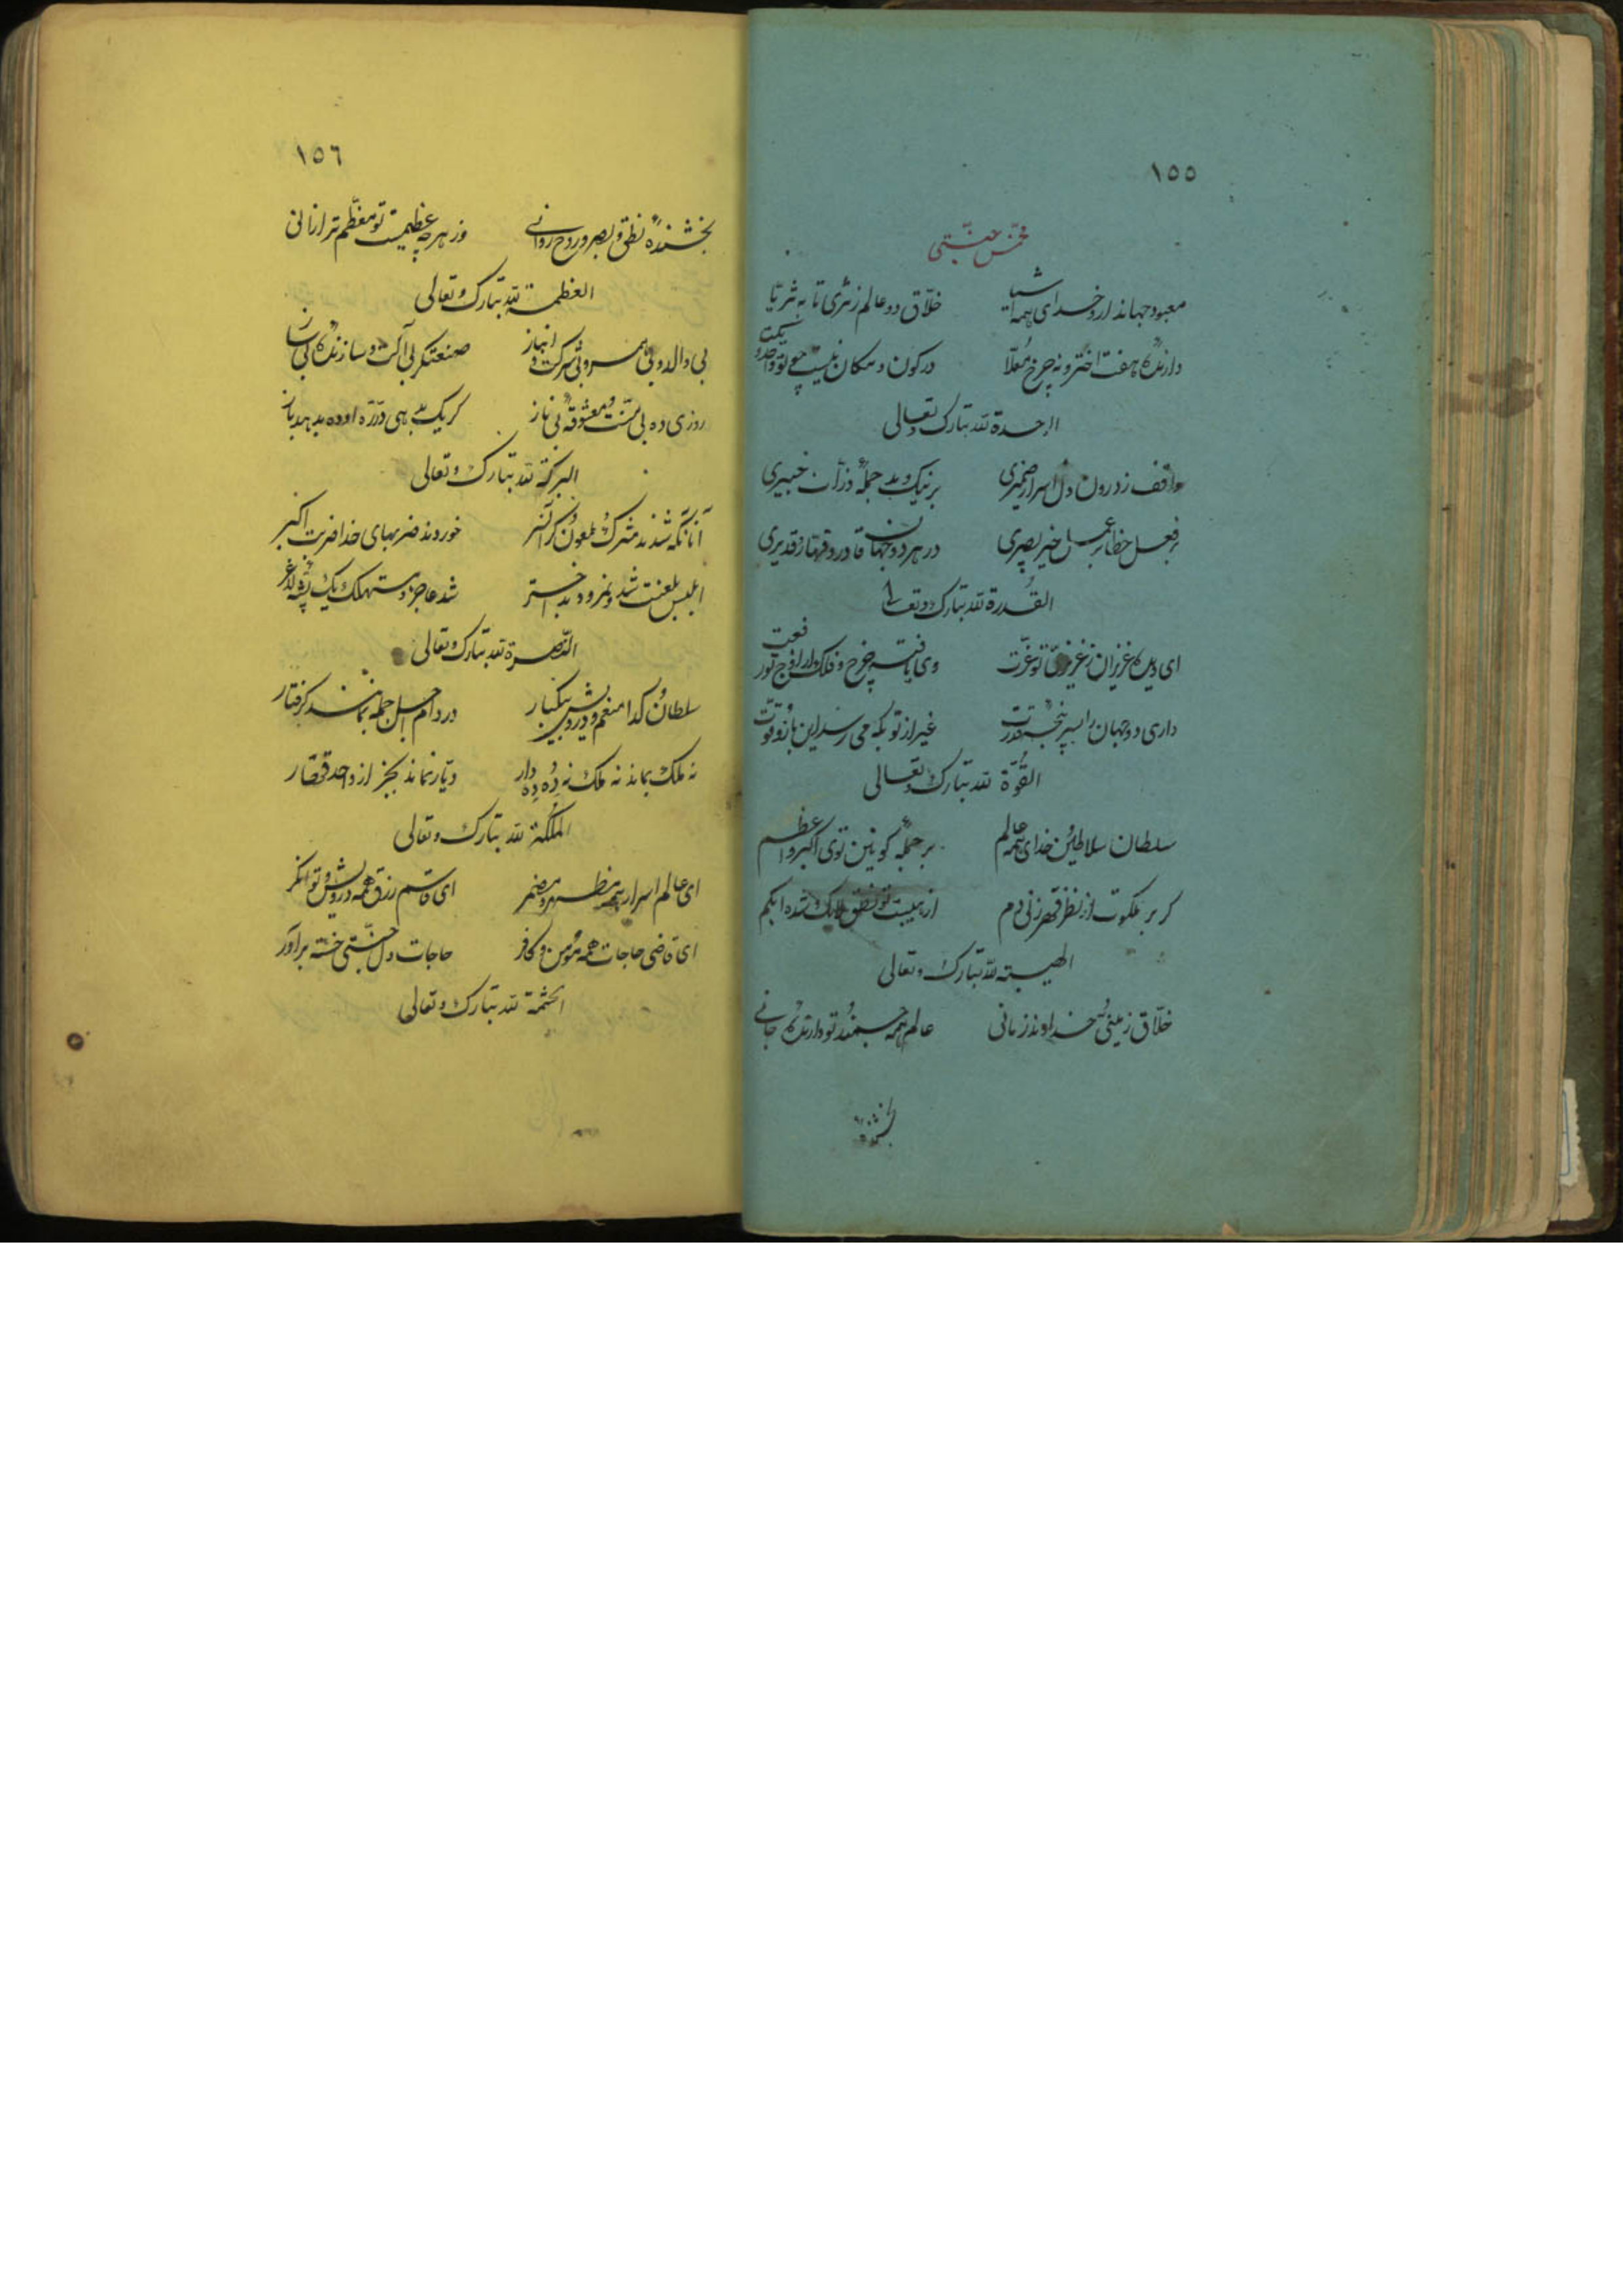 ١٥٥
مخمس جنتی
معبود جهاندار و خدای همه اشیا خلّاق دو عالم ز ثری تا به ثریّا
دارندهٔ هفت اختر و نه چرخ معلّا در کون و مکان نیست چو تو واحد و یکتا
الوحدة لله تبارک و تعالی
واقف ز درون دل و اسرار ضمیری بر نیک و بد جملهٔ ذرّات خبیری
بر فعل خطا بر عمل خیر بصیری در هر دو جهان قادر و قهّار و قدیری
القدرة لله تبارک و تعالی
ای دیده عزیزان ز عزیزیّ تو عزّت وی یافته چرخ و فلک از اوج تو رفعت
داری دو جهان را بسر پنجهٔ قدرت غیر از تو بکه می رسد این بازو و قوّت
القوّة لله تبارک و تعالی
سلطان سلاطین و خدای همه عالم بر جملهٔ کونین توی اکبر و اعظم
کر بر ملکوت از نظر قهر زنی دم از هیبت تو نطق ملایک شده ابکم
الهیبة لله تبارک و تعالی
خلّاق زمینی و خداوند زمانی عالم همه جسمند و تو دارندهٔ جانی
بخشنده
١٥٦
بخشندهٔ نطق و بصر و روح روانی وز هر چه عظیمست تو معظّم تر از آنی
العظمة لله تبارک و تعالی
بی والد و بی همسر و بی شرکت و انباز صنعتکر بی آلت و سازندهٔ بی ساز
روزی ده بی منّت و معشوقهٔ بی ناز کر یک بدهی ذرّه او ده بدهد باز
البرکة لله تبارک و تعالی
آنانکه شدند مشرک و ملعون و کر آنسر خوردند ضربهای خدا ضربت اکبر
ابلیس بلعنت شد و نمرود بد اختر شد عاجز و مستهلک یک پشّهٔ لاغر
النّصرة لله تبارک و تعالی
سلطان و کدا منعم و درویش بیکبار در دام اجل جمله بمانند کرفتار
نه ملک بماند نه ملک نه ده و ده دار دیّار نماند بجز از واحد قهّار
الملکة لله تبارک و تعالی
ای عالم اسرار همه مظهر و مضمر ای قاسم رزق همه درویش و توانکر
ای قاضی حاجات همه مؤمن و کافر حاجات دل جنّتی خسته برآور
الحشمة لله تبارک و تعالی